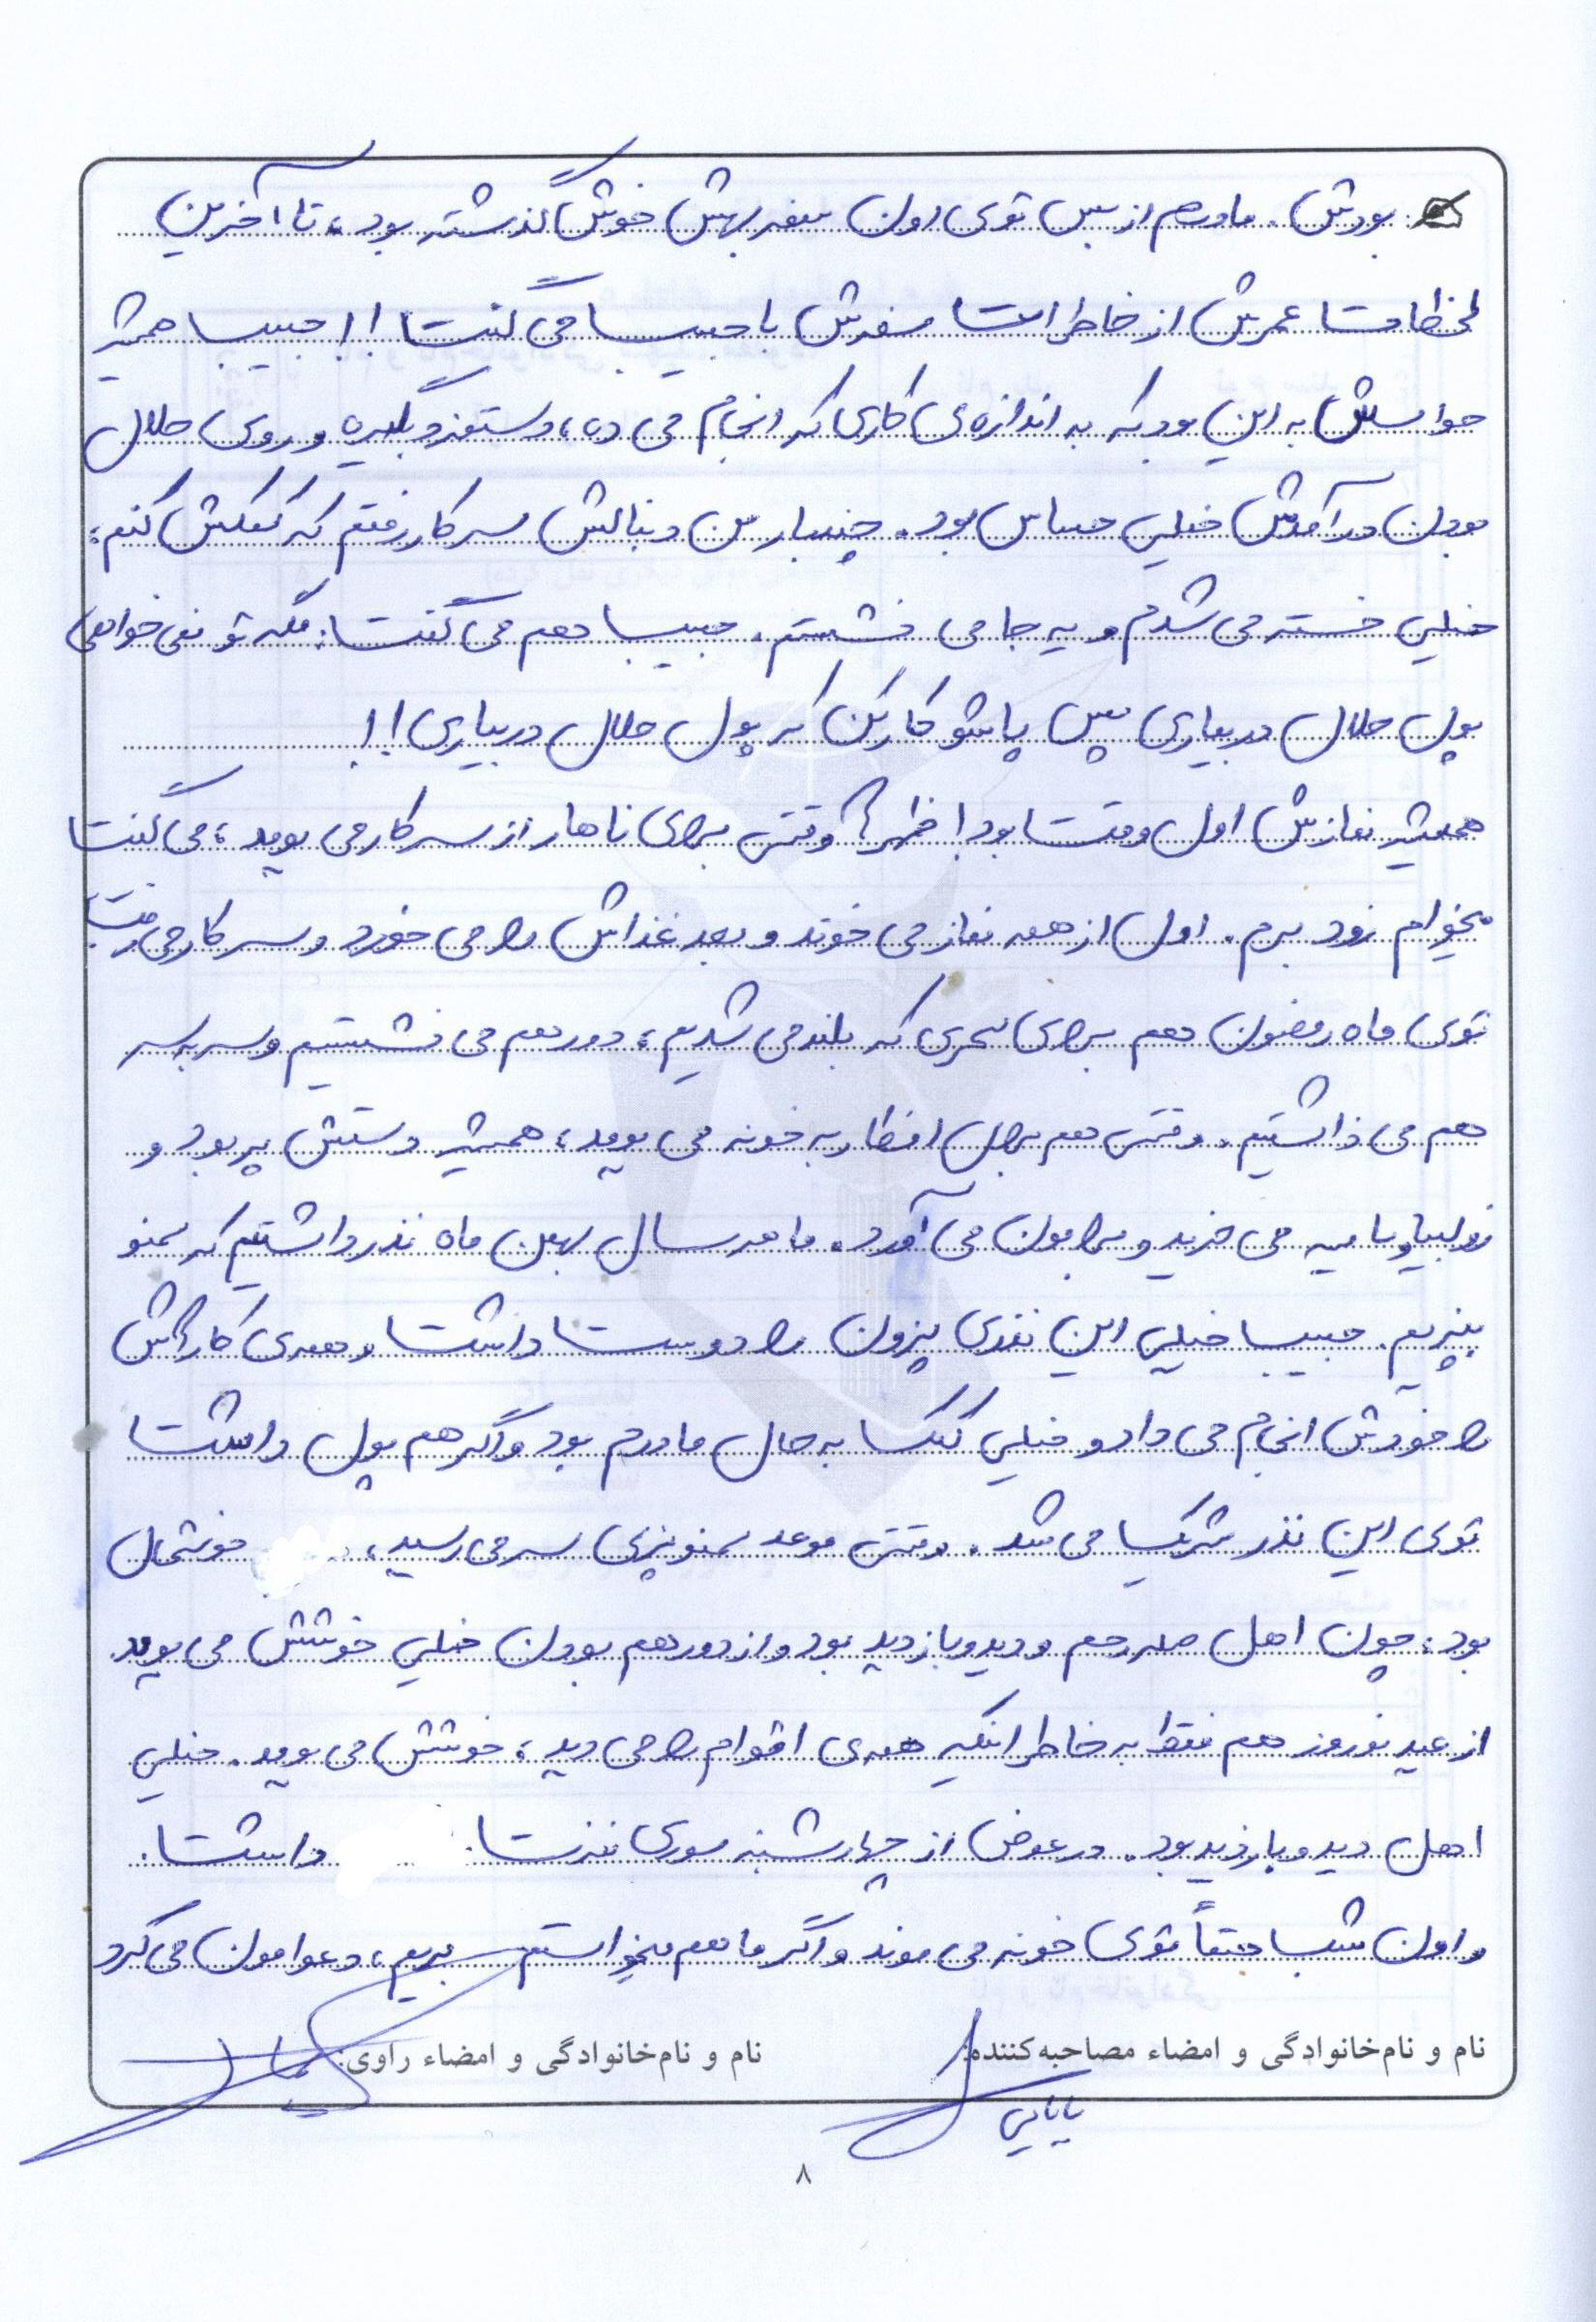 بودش. مادرم از بس توی اون سفر بهش خوش گذشته بود، تا آخرین
لحظات عمرش از خاطرات سفرش با حبیب می گفت!! حبیب همیشه
حواسش به این بود که به اندازه ی کاری که انجام می ده، دستمزد بگیره و روی حلال
بودن درآمدش خیلی حساس بود. چند بار من دنبالش سر کار رفتم که کمکش کنم؛
خیلی خسته می شدم و یه جا می نشستم. حبیب هم می گفت: مگه تو نمی خواهی
پول حلال دربیاری پس پاشو کار کن که پول حلال دربیاری!!
همیشه نمازش اول وقت بود! ظهرها وقتی برای ناهار از سر کار می یومد، می گفت
میخوام زود برم. اول از همه نماز می خوند و بعد غذاش را می خورد و سر کار می رفت
توی ماه رمضون هم برای سحری که بلند می شدیم، دور هم می نشستیم و سر به سر
هم می ذاشتیم. وقتی هم برای افطار به خونه می یومد، همیشه دستش پر بود و
زولبیا و بامیه می خرید و برامون می آورد. ما هر سال بهمن ماه نذر داشتیم که سمنو
بپزیم. حبیب خیلی این نذری پزون را دوست داشت و همه ی کاراش
را خودش انجام می داد و خیلی کمک به حال مادرم بود و اگر هم پول داشت
توی این نذر شریک می شد. وقتی موعد سمنوپزی سر می رسید، خوشحال
بود؛ چون اهل صله رحم و دید و بازدید بود و از دور هم بودن خیلی خوشش می یومد.
از عید نوروز هم فقط به خاطر اینکه همه ی اقوام را می دید، خوشش می یومد. خیلی
اهل دید و بازدید بود. در عوض از چهارشنبه سوری نفرت داشت.
و اون شب حتماً توی خونه می موند و اگر ما هم میخواستیم بریم، دعوامون می کرد
نام و نام‌خانوادگی و امضاء مصاحبه‌کننده:
نام و نام‌خانوادگی و امضاء راوی:
بابایی
۸